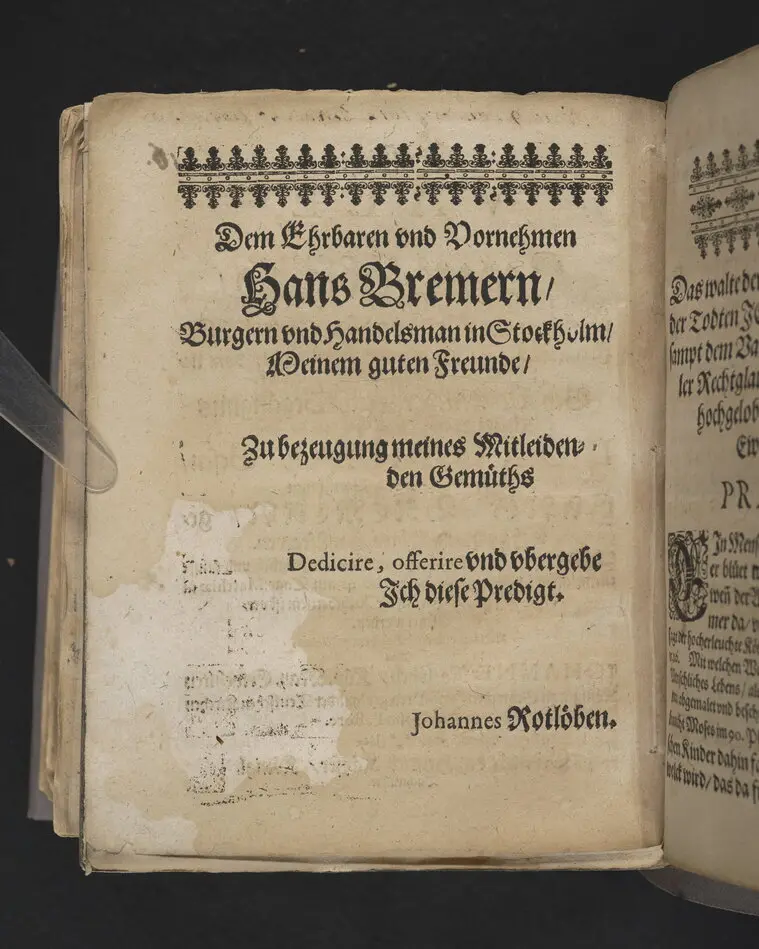 Dem Ehrbaren vnd Vornehmen
Hans Bremern/
Burgern vnd Handelsman in Stockholm/
Meinem guten Freunde/
Zu bezeugung meines Mitleiden-
den Gemüths
Dedicire, offerire vnd vbergebe
Ich diese Predigt.
Johannes Rotlöben.
Das walte der
der Todten J
sampt dem Va
ler Rechtglau
hochgelob
Ew
PR
In Mensch
er blüet
wen der
mer da/
Mit welchen
Menschliches Lebens/
abgemalet vnd besch
Moses im 90.
Kinder dahin fa
welck wird/ das da f